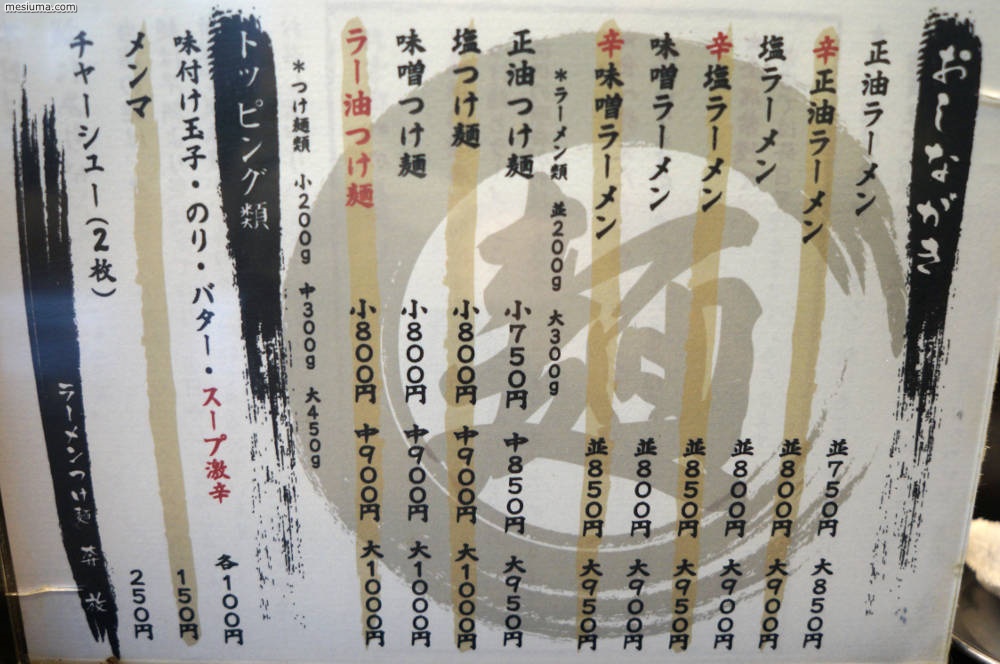 mesiuma.com
おしながき
正油ラーメン 並750円 大850円
辛正油ラーメン 並800円 大900円
塩ラーメン 並800円 大900円
辛塩ラーメン 並850円 大950円
味噌ラーメン 並800円 大900円
辛味噌ラーメン 並850円 大950円
*ラーメン類 並200g 大300g
正油つけ麺 小750円 中850円 大950円
塩つけ麺 小800円 中900円 大1000円
味噌つけ麺 小800円 中900円 大1000円
ラー油つけ麺 小800円 中900円 大1000円
*つけ麺類 小200g 中300g 大450g
トッピング類
味付け玉子・のり・バター・スープ激辛 各100円
メンマ 150円
チャーシュー(2枚) 250円
ラーメンつけ麺
麺